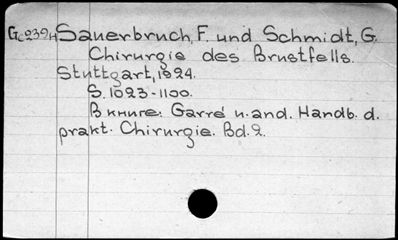 Gc239H Sauerbruch, F. und Schmidt, G.
Chirurgie des Brustfells.
Stuttgart, 1924.
S. 1023-1100.
В книге: Garré u. and. Handb. d.
prakt. Chirurgie. Bd. 2.